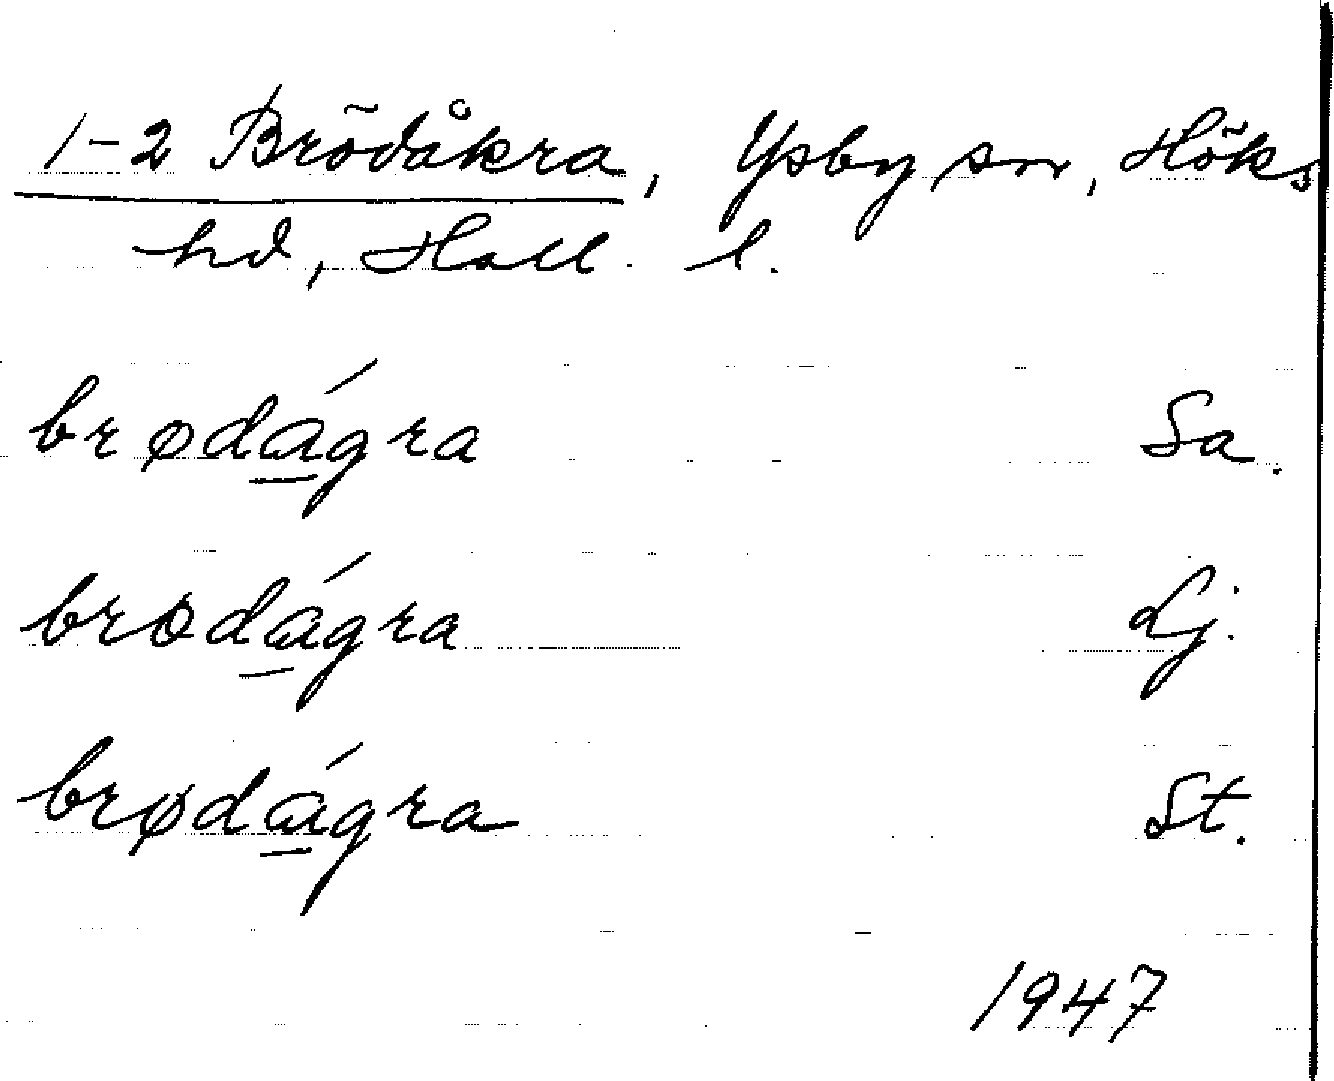 1-2 Brödåkra, Ysby sn, Höks
hd, Hall. l.
brødágra Sa.
brodágra Lj.
brødágra St.
1947